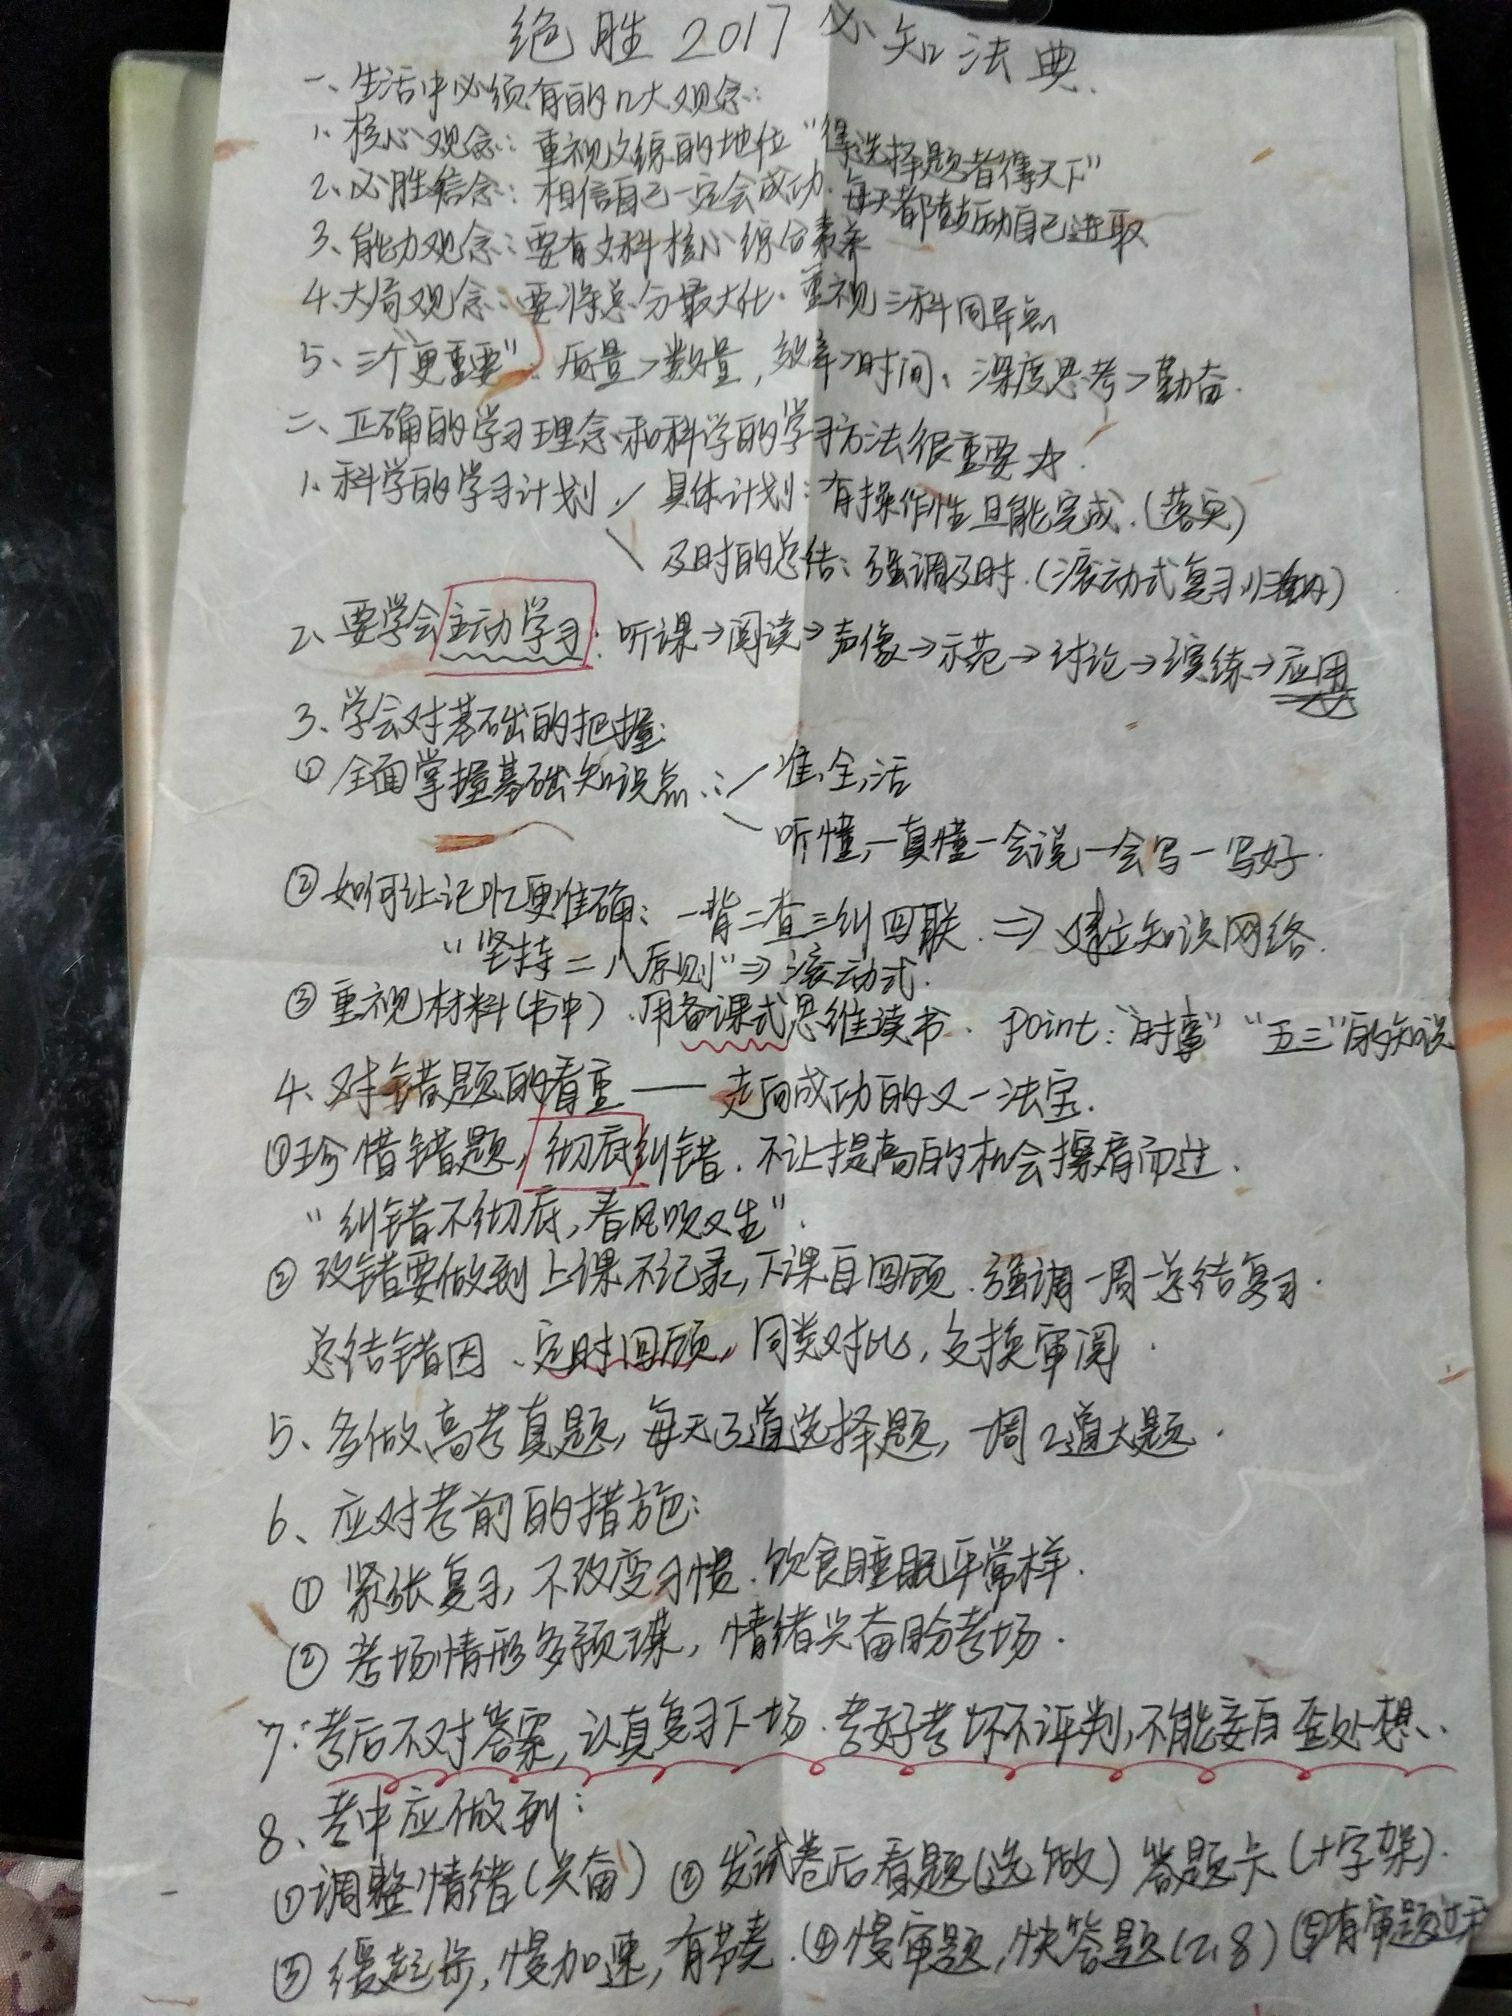 绝胜2017必知法典.
一、生活中必须有的几大观念:
1、核心观念: 重视文综的地位"得选择题者得天下"
2、必胜信念: 相信自己一定会成功. 每天都鼓励自己进取
3、能力观念: 要有文科核心综合素养
4、大局观念: 要将总分最大化. 重视三科同异点
5、三个"更重要". 质量>数量, 效率>时间、深度思考>勤奋.
二、正确的学习理念和科学的学习方法很重要☆.
1、科学的学习计划 具体计划: 有操作性且能完成.(落实)
及时的总结: 强调及时.(滚动式复习归纳)
2、要学会主动学习: 听课→阅读→声像→示范→讨论→演练→应用
3、学会对基础的把握:
① 全面掌握基础知识点: 准、全、活
听懂,一真懂一会说一会写一写好.
② 如何让记忆更准确: 一背二查三纠四联. ⇒ 建立知识网络.
"坚持二八原则"⇒滚动式.
③ 重视材料(书中). 用备课式思维读书. Point: "时事" "五三"的知识
4、对错题的看重——走向成功的又一法宝.
①珍惜错题, 彻底纠错. 不让提高的机会擦肩而过.
"纠错不彻底, 春风吹又生".
② 改错要做到上课不记录, 下课自回顾. 强调一周一总结复习.
总结错因、定时回顾, 同类对比, 交换审阅.
5、多做高考真题, 每天3道选择题, 一周2道大题.
6、应对考前的措施:
① 紧张复习, 不改变习惯. 饮食睡眠平常样.
② 考场情形多预谋, 情绪兴奋盼考场.
7、考后不对答案, 认真复习下一场. 考好考坏不评判, 不能妄自歪处想.
8、考中应做到:
①调整情绪(兴奋) ② 发试卷后看题(选做) 答题卡(十字架).
③ 缓起步, 慢加速, 有节奏. ④慢审题, 快答题(2、8) ⑤有审题过